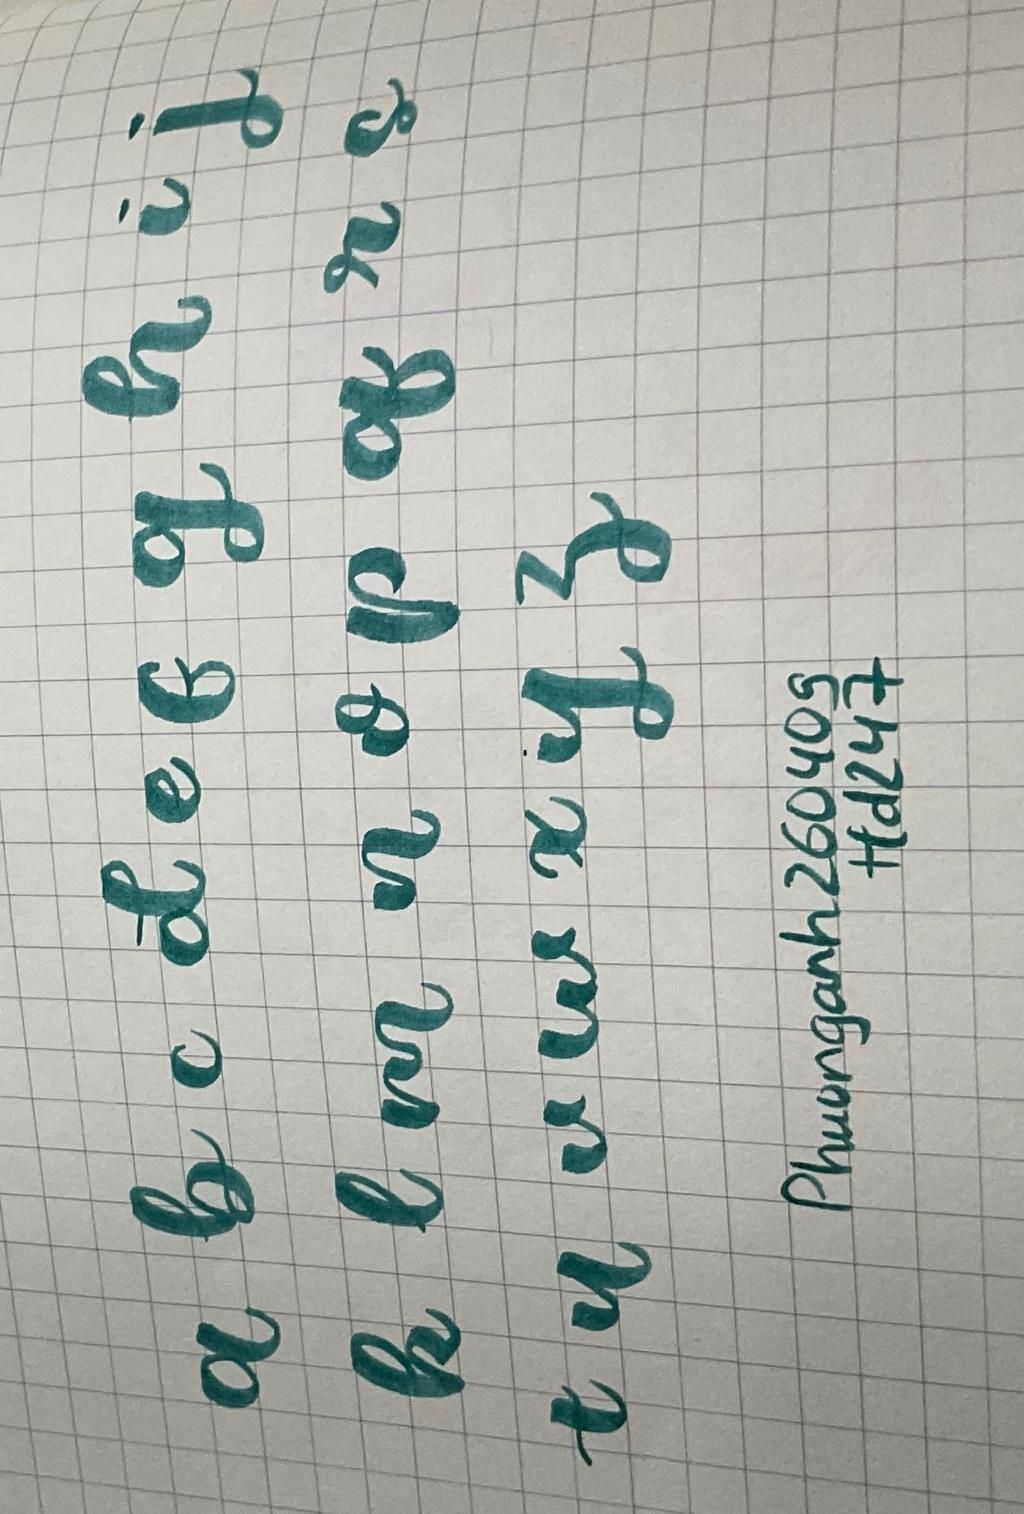 a b c d e f g h i j
k l m n o p q r s
t u v w x y z
Phuonganh260409
Htd247